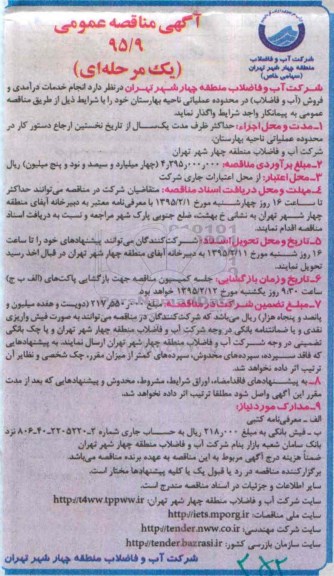 آگهی مناقصه عمومی
۹۵/۹
(یک مرحله‌ای)
شرکت آب و فاضلاب
منطقه چهار شهر تهران
(سهامی خاص)
شرکت آب و فاضلاب منطقه چهار شهر تهران در نظر دارد انجام خدمات درآمدی و
فروش (آب و فاضلاب) در محدوده عملیاتی ناحیه بهارستان خود را با شرایط ذیل از طریق مناقصه
عمومی به پیمانکار واجد شرایط واگذار نماید.
۱ـ مدت و محل اجراء: حداکثر ظرف مدت یکسال از تاریخ نخستین ارجاع دستور کار در
محدوده عملیاتی ناحیه بهارستان.
شرکت آب و فاضلاب منطقه چهار شهر تهران
۲ـ مبلغ برآوردی مناقصه: ۴٫۳۹۵٫۰۰۰٫۰۰۰ (چهار میلیارد و سیصد و نود و پنج میلیون) ریال
۳ـ محل اعتبار: از محل اعتبارات جاری شرکت
۴ـ مهلت و محل دریافت اسناد مناقصه: متقاضیان شرکت در مناقصه می‌توانند حداکثر
تا ساعت ۱۶ روز چهارشنبه مورخ ۱۳۹۵/۲/۱ با معرفی‌نامه معتبر به دبیرخانه آبفای منطقه
چهار شهر تهران به نشانی خ بهشت، ضلع جنوبی پارک شهر مراجعه و نسبت به دریافت اسناد
مناقصه اقدام نمایند.
۵ـ تاریخ و محل تحویل اسناد: شرکت‌کنندگان می‌توانند پیشنهادهای خود را تا ساعت
۱۶ روز شنبه مورخ ۱۳۹۵/۲/۱۱ به دبیرخانه آبفای منطقه چهار شهر تهران در قبال اخذ رسید
تحویل نمایند.
۶ـ تاریخ و زمان بازگشایی: جلسه کمیسیون مناقصه جهت بازگشایی پاکت‌های (الف ب ج)
ساعت ۹:۳۰ روز یکشنبه مورخ ۱۳۹۵/۲/۱۲ خواهد بود.
۷ـ مبلغ تضمین شرکت در مناقصه: مبلغ ۲۱۷٫۵۵۰٫۰۰۰ (دویست و هفده میلیون و
پانصد و پنجاه هزار) ریال می‌باشد که شرکت‌کنندگان در مناقصه می‌توانند به صورت فیش واریزی
نقدی و یا ضمانتنامه بانکی در وجه شرکت آب و فاضلاب منطقه چهار شهر تهران و یا چک بانکی
تضمینی در وجه شرکت آب و فاضلاب منطقه چهار شهر تهران ارسال نمایند. به پیشنهادهایی
که فاقد سپرده، سپرده‌های مخدوش، سپرده‌های کمتر از میزان مقرر، چک شخصی و نظایر آن
ترتیب اثر داده نخواهد شد.
۸ـ به پیشنهادهای فاقد امضاء، اوراق شرایط، مشروط، مخدوش و پیشنهادهایی که بعد از مدت
مقرر این آگهی واصل شود مطلقا ترتیب اثر داده نخواهد شد.
۹ـ مدارک مورد نیاز:
الف ـ معرفی‌نامه کتبی
ب ـ فیش بانکی به مبلغ ۲۱۸٫۰۰۰ ریال به حساب جاری شماره
بانک سامان شعبه بازار بنام شرکت آب و فاضلاب منطقه چهار شهر تهران
ضمناً هزینه درج آگهی مربوط به این مناقصه به عهده برنده مناقصه می‌باشد.
برگزارکننده مناقصه در رد یا قبول یک یا کلیه پیشنهادها مختار است.
سایر اطلاعات و جزئیات در اسناد مناقصه مندرج است.
سایت شرکت آب و فاضلاب منطقه چهار شهر تهران: http://t4ww.tppww.ir
سایت ملی مناقصات: http://iets.mporg.ir
سایت شرکت مهندسی: http://tender.nww.co.ir
سایت سازمان بازرسی کشور: http://tender.bazrasi.ir
شرکت آب و فاضلاب منطقه چهار شهر تهران